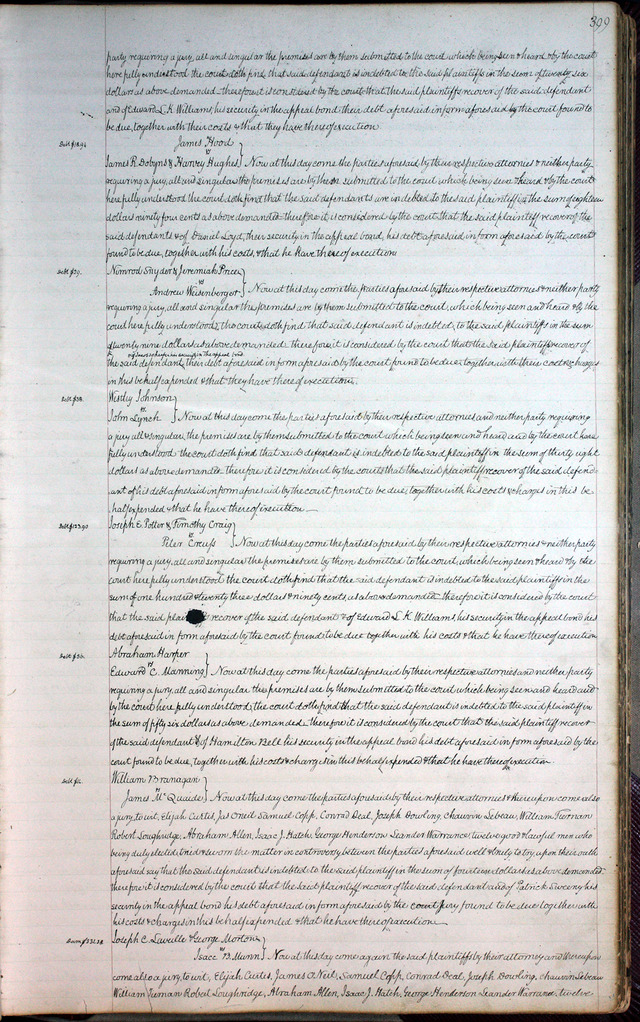 399
party requiring a jury, all and singular the premises are by them submitted to the court which being seen & heard & by the court
here fully understood the court doth find that said defendant is indebted to the said plaintiffs in the sum of twenty six
dollars as above demanded therefore it is considered by the court that the said plaintiffs recover of the said defendant
and of Edward L.K. Williams, his security in the appeal bond, their debt aforesaid in form aforesaid by the court found to
be due, together with their costs & that they have thereof execution
James Hood
vs
James R. Dobyns & Harvey Hughes } Now at this day come the parties aforesaid by their respective attornies & neither party
requiring a jury, all and singular the premises are by them submitted to the court which being seen & heard & by the court
here fully understood the court doth find that the said defendants are indebted to the said plaintiff in the sum of eighteen
dollars ninety four cents as above demanded therefore it is considered by the court that the said plaintiff recover of the
said defendants & of Daniel Loyd, their security in the appeal bond, his debt aforesaid in form aforesaid by the court
found to be due, together with his costs, & that he have thereof execution
Nimrod Snyder & Jeremiah Price
vs
Andrew Weisenberger } Now at this day come the parties aforesaid by their respective attornies & neither party
requiring a jury, all and singular the premises are by them submitted to the court, which being seen and heard & by the
court here fully understood, the court doth find that said defendant is indebted, to the said plaintiffs in the sum
of twenty nine dollars as above demanded. therefore it is considered by the court that the said plaintiffs recover of
the said defendant, their debt aforesaid in form aforesaid by the court found to be due, together with their costs & charges
in this behalf expended & that they have thereof execution.
Westley Johnson
vs
John Lynch } Now at this day come the parties aforesaid by their respective attornies and neither party requiring
a jury all & singular, the premises are by them submitted to the court which being seen and heard and by the court here
fully understood the court doth find that said defendant is indebted to the said plaintiff in the sum of thirty eight
dollars as above demanded. therefore it is considered by the court that the said plaintiff recover of the said defend
ant of his debt aforesaid in form aforesaid by the court found to be due, together with his costs & charges in this be
half expended & that he have thereof execution
Joseph E. Potter & Timothy Craig
vs
Peter Creuss } Now at this day come the parties aforesaid by their respective attornies & neither party
requiring a jury, all and singular, the premises are by them submitted to the court, which being seen & heard & by the
court here fully understood the court doth find that the said defendant is indebted to the said plaintiffs in the
sum of one hundred & twenty three dollars & ninety cents as above demanded therefore it is considered by the court
that the said recover of the said defendant & of Edward L K Williams his security in the appeal bond his
debt aforesaid in form aforesaid by the court found to be due together with his costs & that he have thereof execution
Abraham Harper
vs
Edward C. Manning } Now at this day come the parties aforesaid by their respective attornies and neither party
requiring a jury, all and singular the premises are by them submitted to the court which being seen and heard and
by the court here fully understood, the court doth find that the said defendant is indebted to the said plaintiff in
the sum of fifty six dollars as above demanded. therefore it is considered by the court that the said plaintiff recover
of the said defendant & of Hamilton Bell his security in the appeal bond his debt aforesaid in form aforesaid by the
court found to be due, together with his costs & charges in this behalf expended & that he have thereof execution
William Branagan
vs
James McQuaide } Now at this day come the parties aforesaid by their respective attornies & thereupon come also
a jury to wit, Elijah Curtis, Jas Oneil Samuel Copp, Conrad Deal, Joseph Dowling, Chauvin Lebeau, William Tiernan
Robert Loughridge, Abraham Allen, Isaac J. Hatch, George Henderson Leander Warrance, twelve good & lawful men who
being duly elected tried & sworn the matter in controversy between the parties aforesaid well & truly to try, upon their oath
aforesaid say that the said defendant is indebted to the said plaintiff in the sum of fourteen dollars as above demanded
therefore it is considered by the court that the said plaintiff recover of the said defendant and of Patrick Sweeny his
security in the appeal bond his debt aforesaid in form aforesaid by the jury found to be due together with
his costs & charges in this behalf expended & that he have thereof execution
Joseph C. Laveille & George Morton
vs
Isaac B. Munn } Now at this day come again the said plaintiffs by their attorney and thereupon
come also a jury, to wit, Elijah Curtis, James O Neil, Samuel Copp, Conrad Deal, Joseph Dowling, Chauvin Lebeau
William Tiernan Robert Loughridge, Abraham Allen, Isaac J. Hatch, George Henderson Leander Warrance, twelve